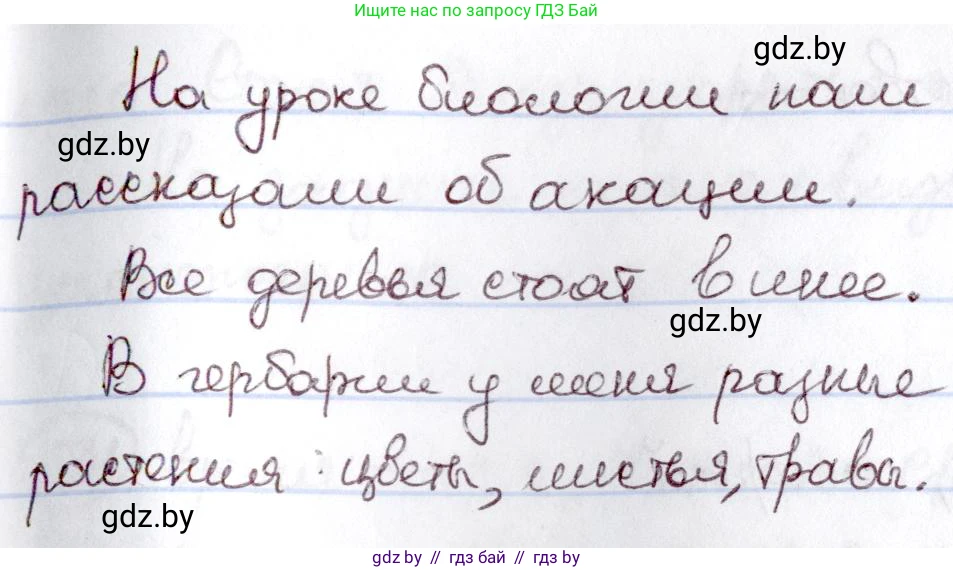 Ищите нас по запросу ГДЗ Бай
gdz.by
На уроке биологии нам
gdz.by
рассказали об акации.
Все деревья стоят в инее.
gdz.by
В гербарии у меня разные
растения: цветы, листья, травы.
gdz.by
gdz.by // гдз бай // гдз by